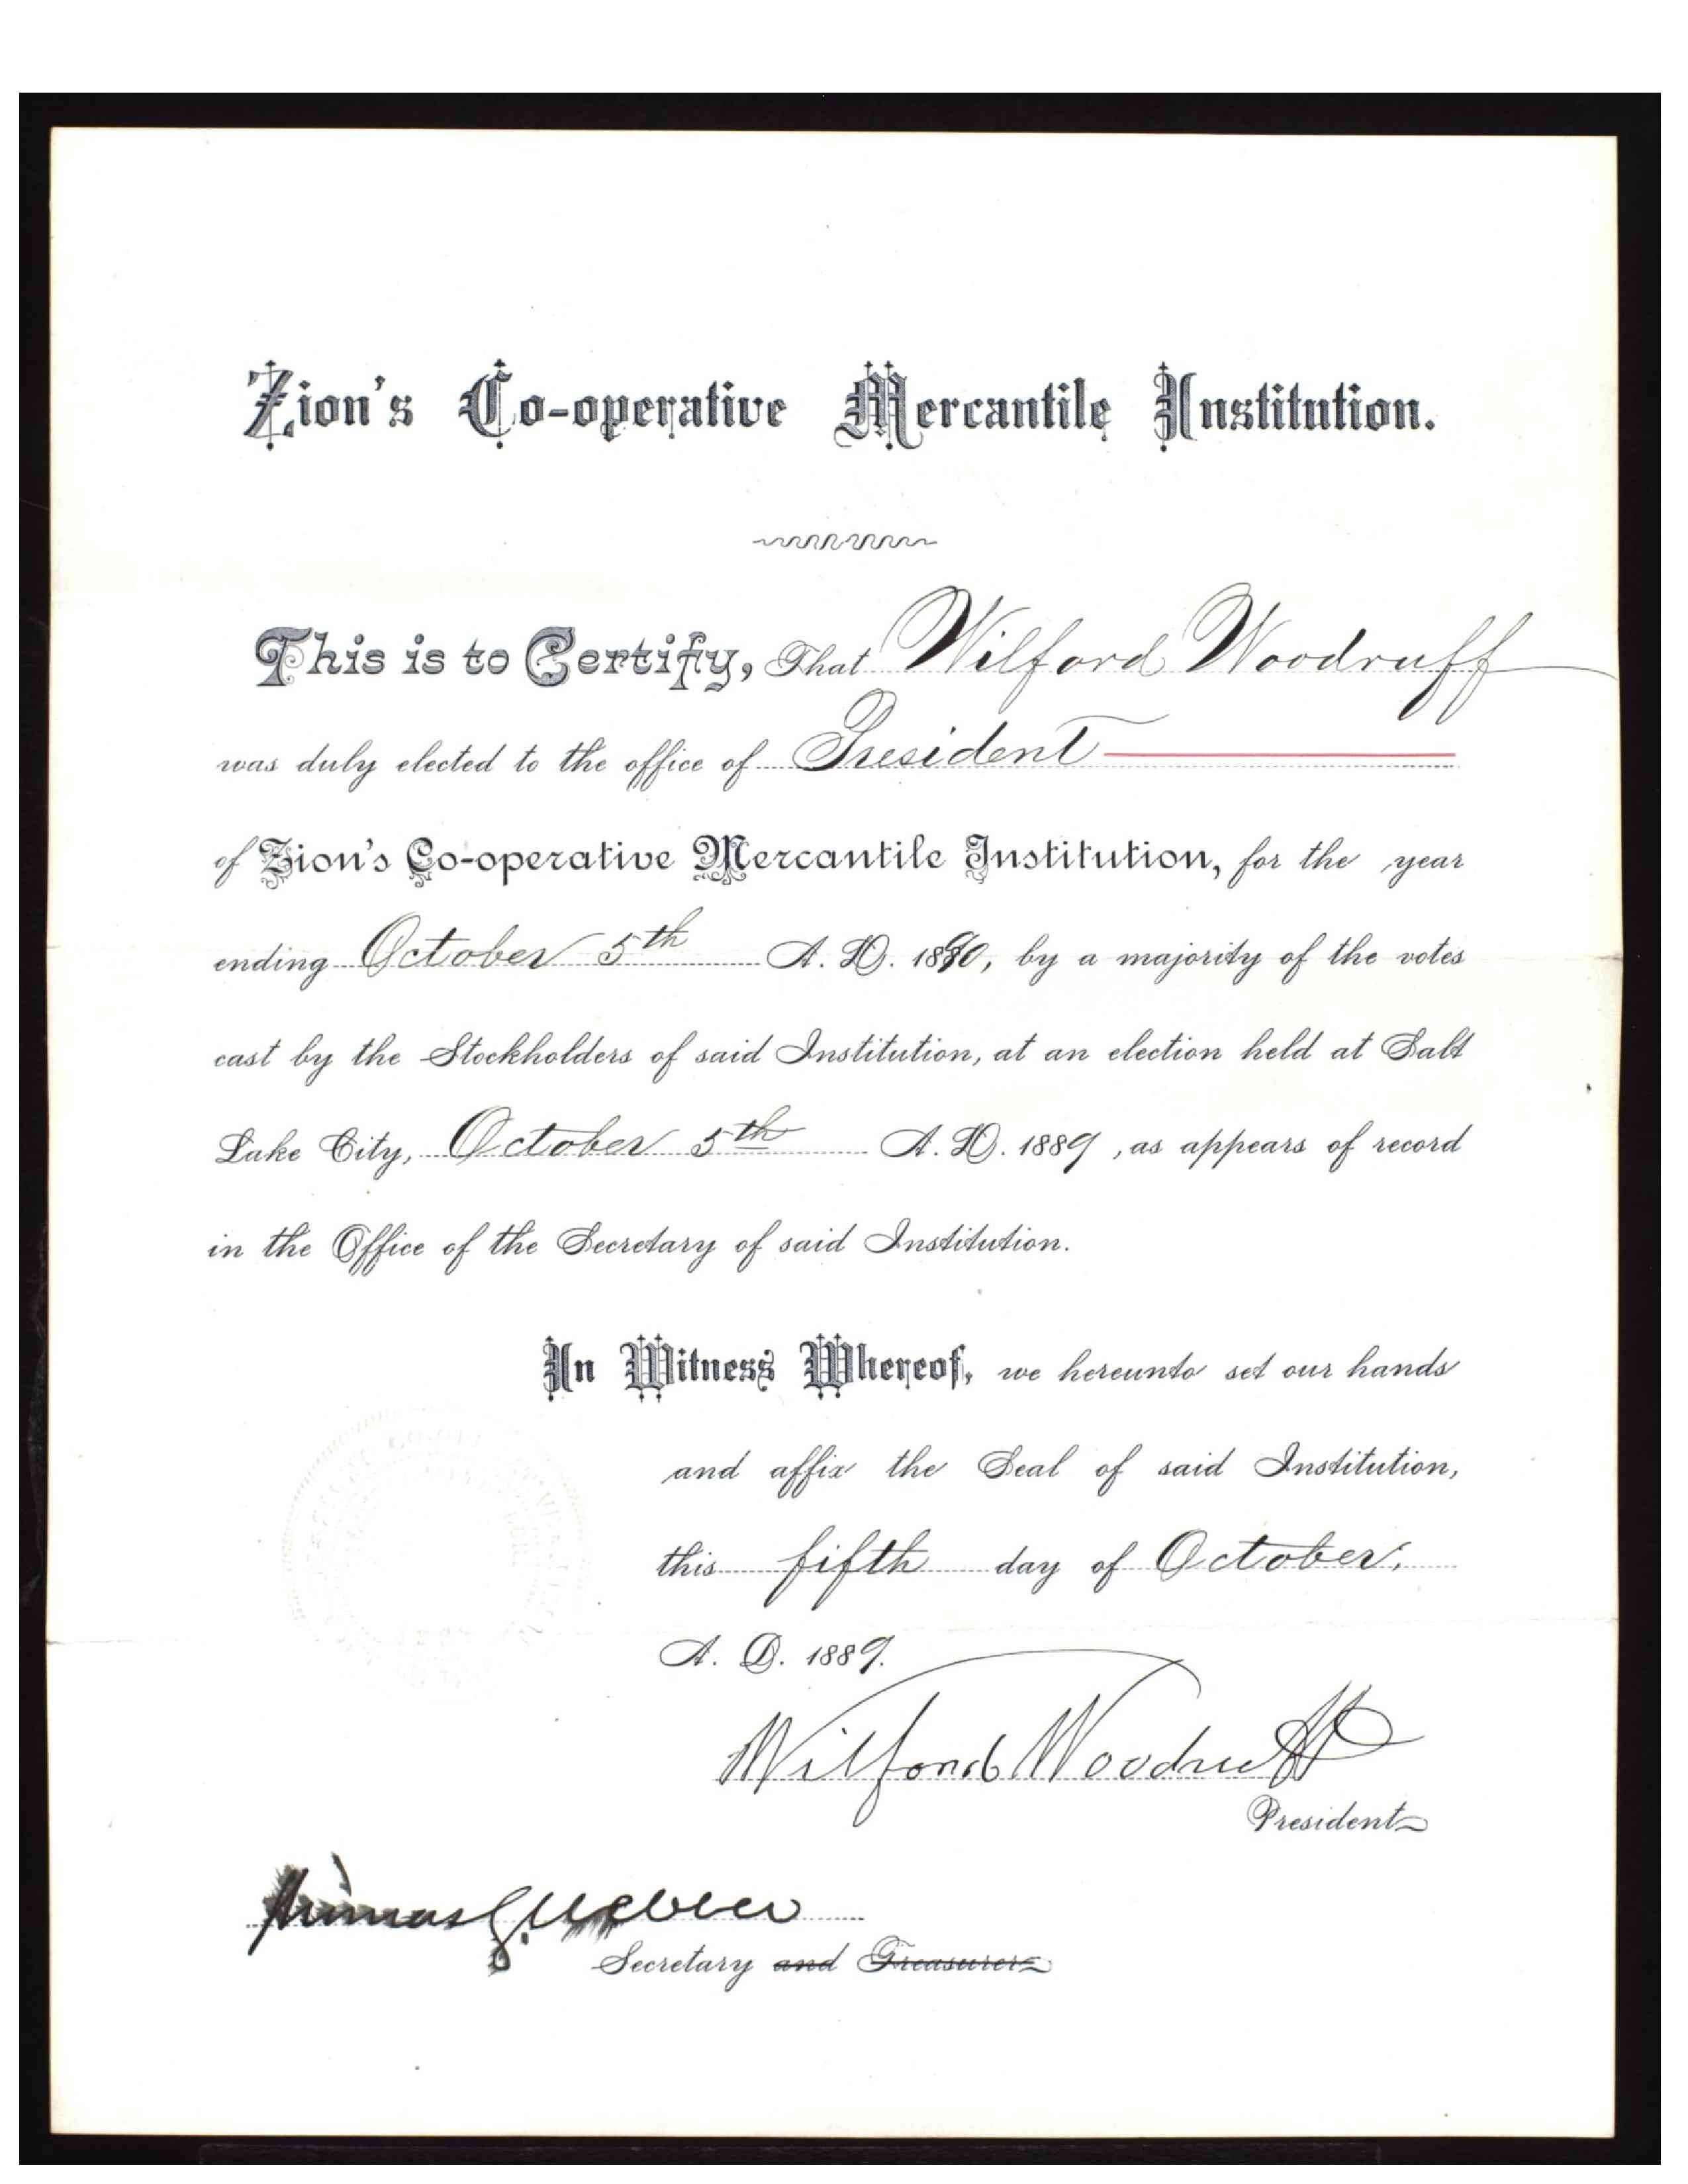 Zion's Co-operative Mercantile Institution.
This is to Certify, That Wilford Woodruff
was duly elected to the office of President
of Zion's Co-operative Mercantile Institution, for the year
ending October 5th A. D. 1890, by a majority of the votes
cast by the Stockholders of said Institution, at an election held at Salt
Lake City, October 5th A. D. 1889, as appears of record
in the Office of the Secretary of said Institution.
In Witness Whereof, we hereunto set our hands
and affix the Seal of said Institution,
this fifth day of October,
A. D. 1889.
Wilford Woodruff
President
Thomas G. Webber
Secretary and Treasurer